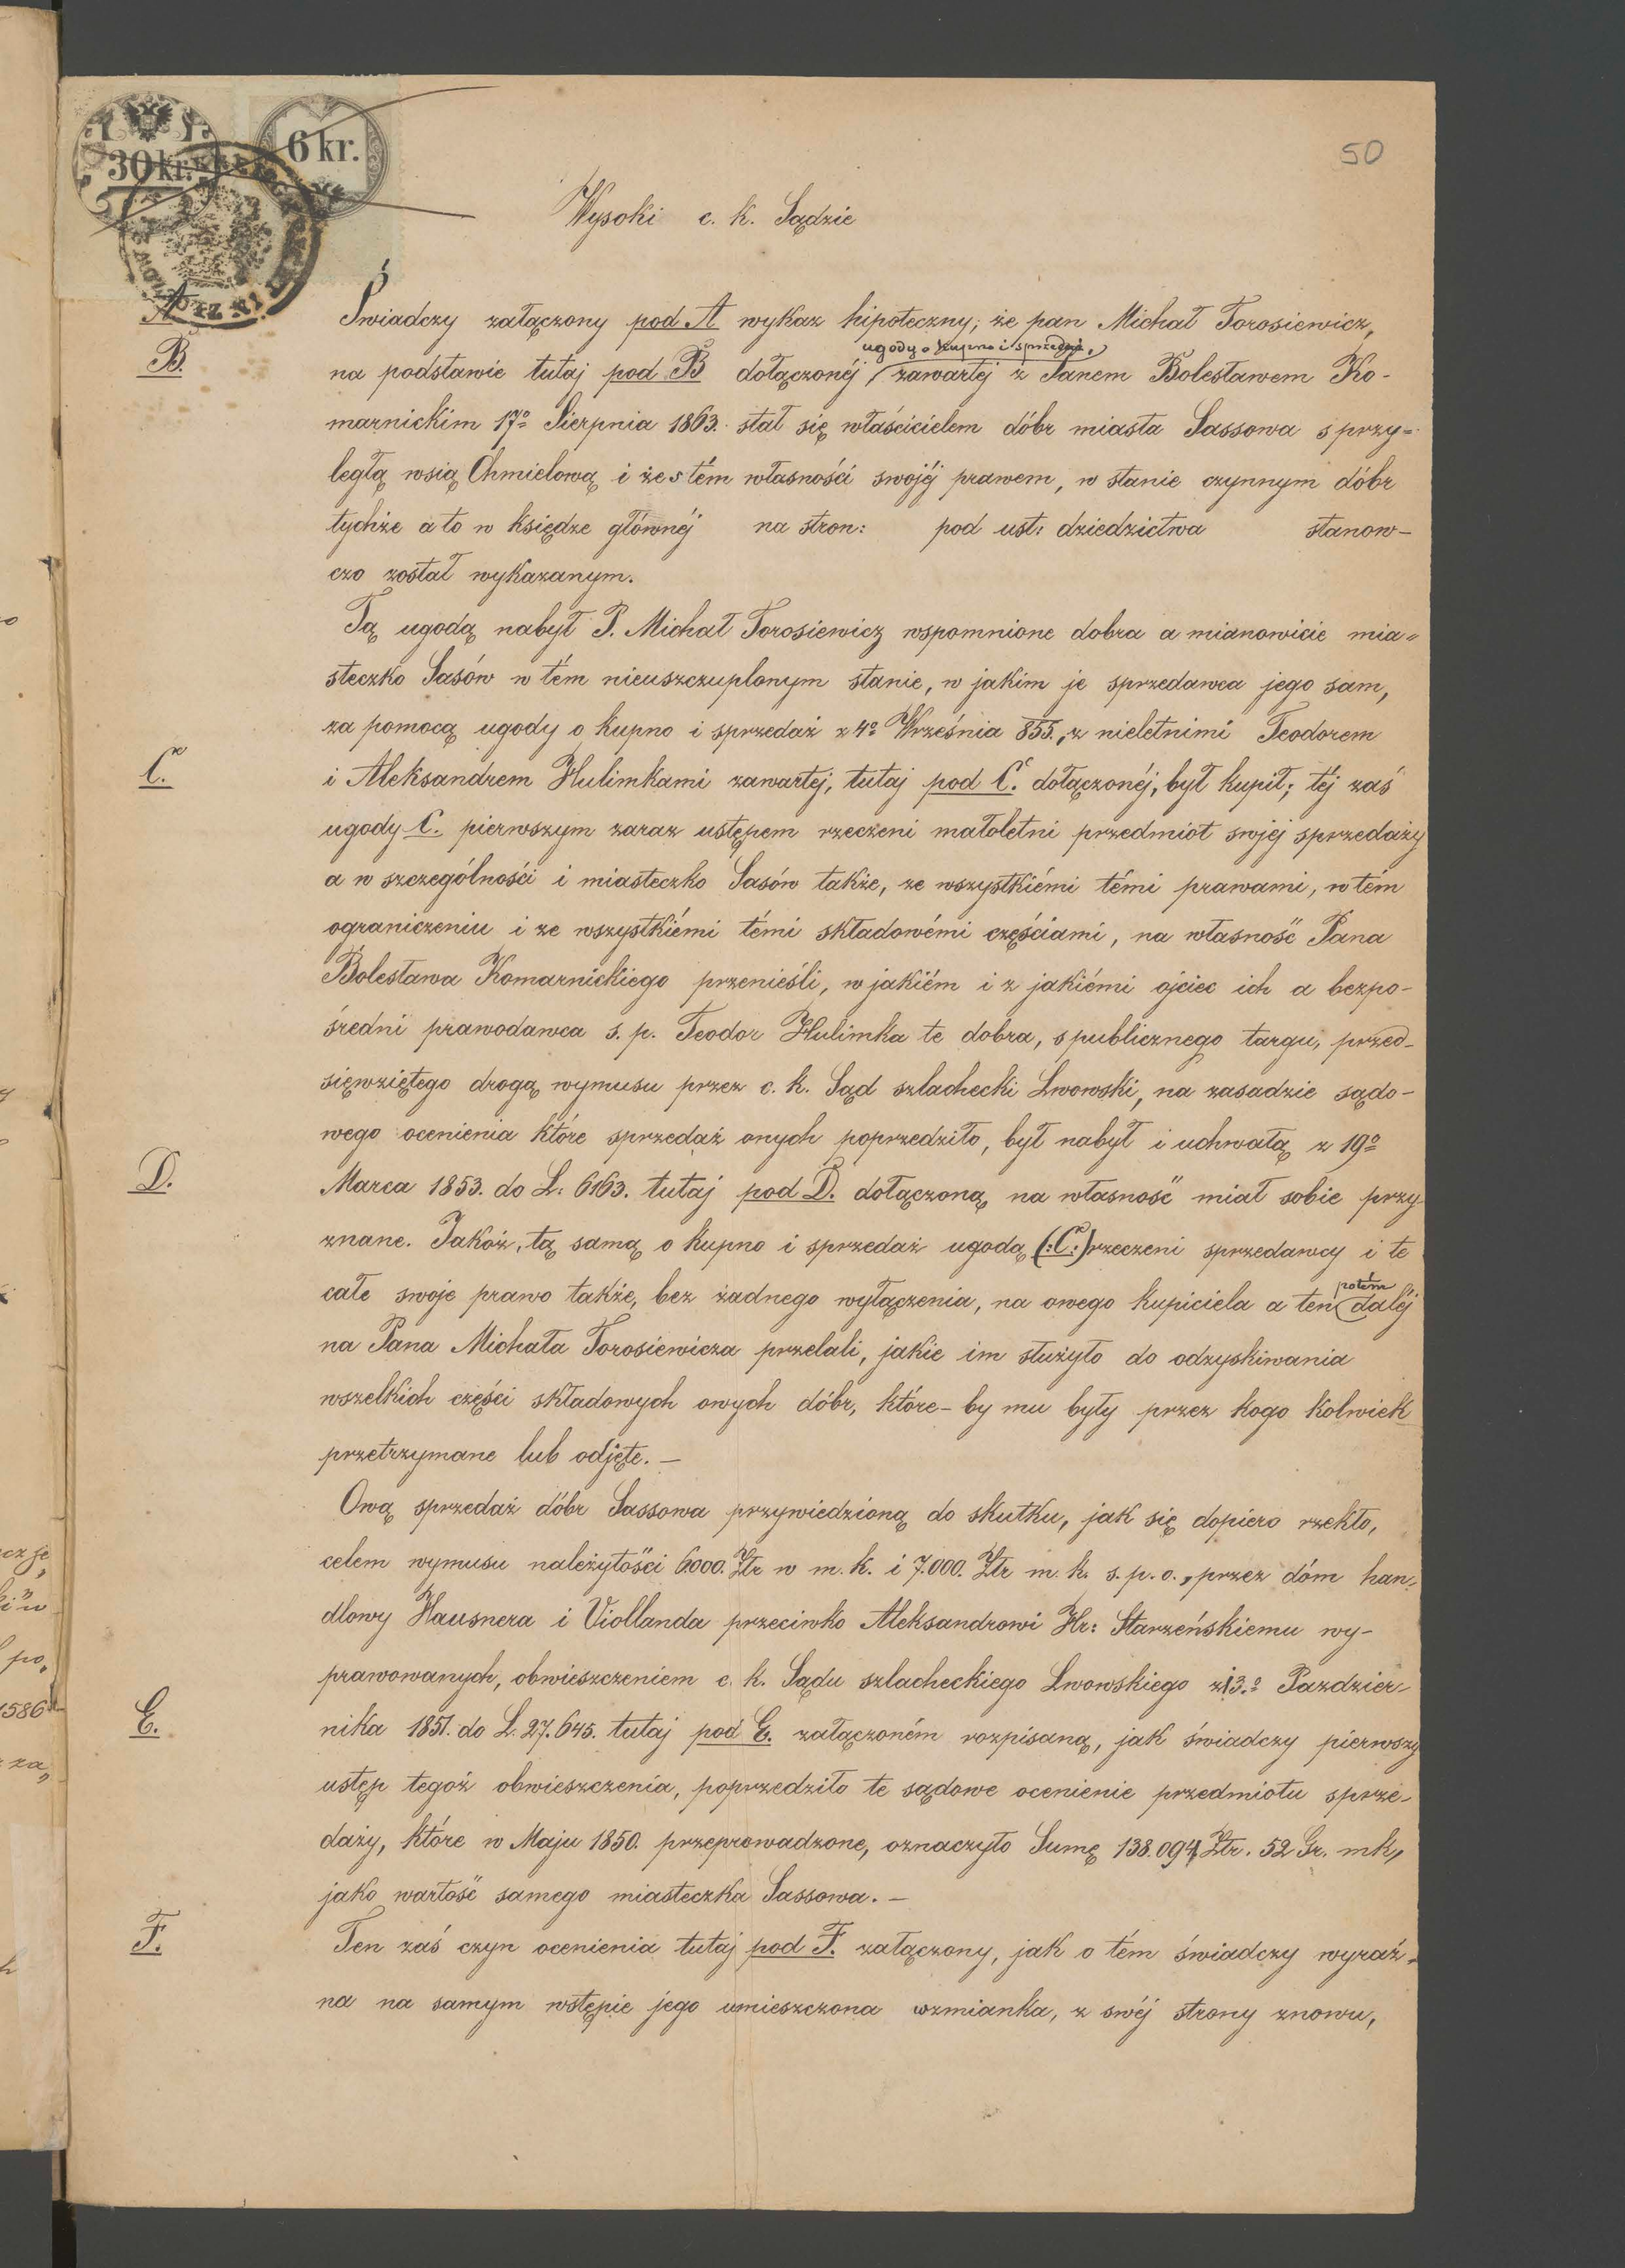 50
30 kr.
6 kr.
Wysoki c. k. Sądzie
A
Świadczy załączony pod A wykaz hipoteczny, że pan Michał Torosiewicz,
ugody o kupno i sprzedaż,
B.
na podstawie tutaj pod B dołączonéj zawartéj z Panem Bolesławem Ko-
marnickim 17º Sierpnia 1863. stał się właścicielem dóbr miasta Sassowa s przy=
ległą wsią Chmielową i że s tém własności swojéj prawem, w stanie czynnym dóbr
tychże a to w księdze głównéj na stron: pod ust: dziedzictwa stanow-
czo został wykazanym.
Tą ugodą nabył P. Michał Torosiewicz wspomnione dobra a mianowicie mia=
steczko Sasów w tém nieuszczuplonym stanie, w jakim je sprzedawca jego sam,
za pomocą ugody o kupno i sprzedaż z 4º Września 855., z nieletnimi Teodorem
C.
i Aleksandrem Hulimkami zawartej, tutaj pod C. dołączonéj, był kupił; téj zaś
ugody C. pierwszym zaraz ustępem rzeczeni małoletni przedmiot swjéj sprzedaży
a w szczególności i miasteczko Sasów także, ze wszystkiémi témi prawami, w tém
ograniczeniu i ze wszystkiémi témi składowémi częściami, na własność Pana
Bolesława Komarnickiego przenieśli, w jakiém i z jakiémi ojciec ich a bezpo-
średni prawodawca s. p. Teodor Hulimka te dobra, s publicznego targu, przed-
sięwziętego drogą wymusu przez c. k. Sąd szlachecki Lwowski, na zasadzie sądo-
wego ocenienia które sprzedaż onych poprzedziło, był nabył i uchwałą z 19º
D.
Marca 1853. do L. 6163. tutaj pod D. dołączoną na własność miał sobie przy
znane. Jakoż, tą samą o kupno i sprzedaż ugodą (:C:) rzeczeni sprzedawcy i te
potem
całe swoje prawo także, bez żadnego wyłączenia, na owego kupiciela a ten daléj
na Pana Michała Torosiewicza przelali, jakie im służyło do odzyskiwania
wszelkich części składowych owych dóbr, które-by mu były przez kogo kolwiek
przetrzymane lub odjęte. —
Ową sprzedaż dóbr Sassowa przywiedzioną do skutku, jak się dopiero rzekło,
celem wymusu należytości 6.000. Złr w m. k. i 7.000. Złr m. k. s. p. o., przez dóm han,
dlowy Hausnera i Viollanda przeciwko Aleksandrowi Hr: Starzeńskiemu wy-
prawowanych, obwieszczeniem c. k. Sądu szlacheckiego Lwowskiego z 13.º Pazdzier-
E.
nika 1851. do L. 27.645. tutaj pod E. załączoném rozpisaną, jak świadczy pierwszy
ustęp tegoż obwieszczenia, poprzedziło te sądowe ocenienie przedmiotu sprze-
daży, które w Maju 1850. przeprowadzone, oznaczyło Sumę 138.094 Złr. 52 Gr. mk,
jako wartość samego miasteczka Sassowa. —
F.
Ten zaś czyn ocenienia tutaj pod F. załączony, jak o tém świadczy wyraź-
na na samym wstępie jego umieszczona wzmianka, z swéj strony znowu,